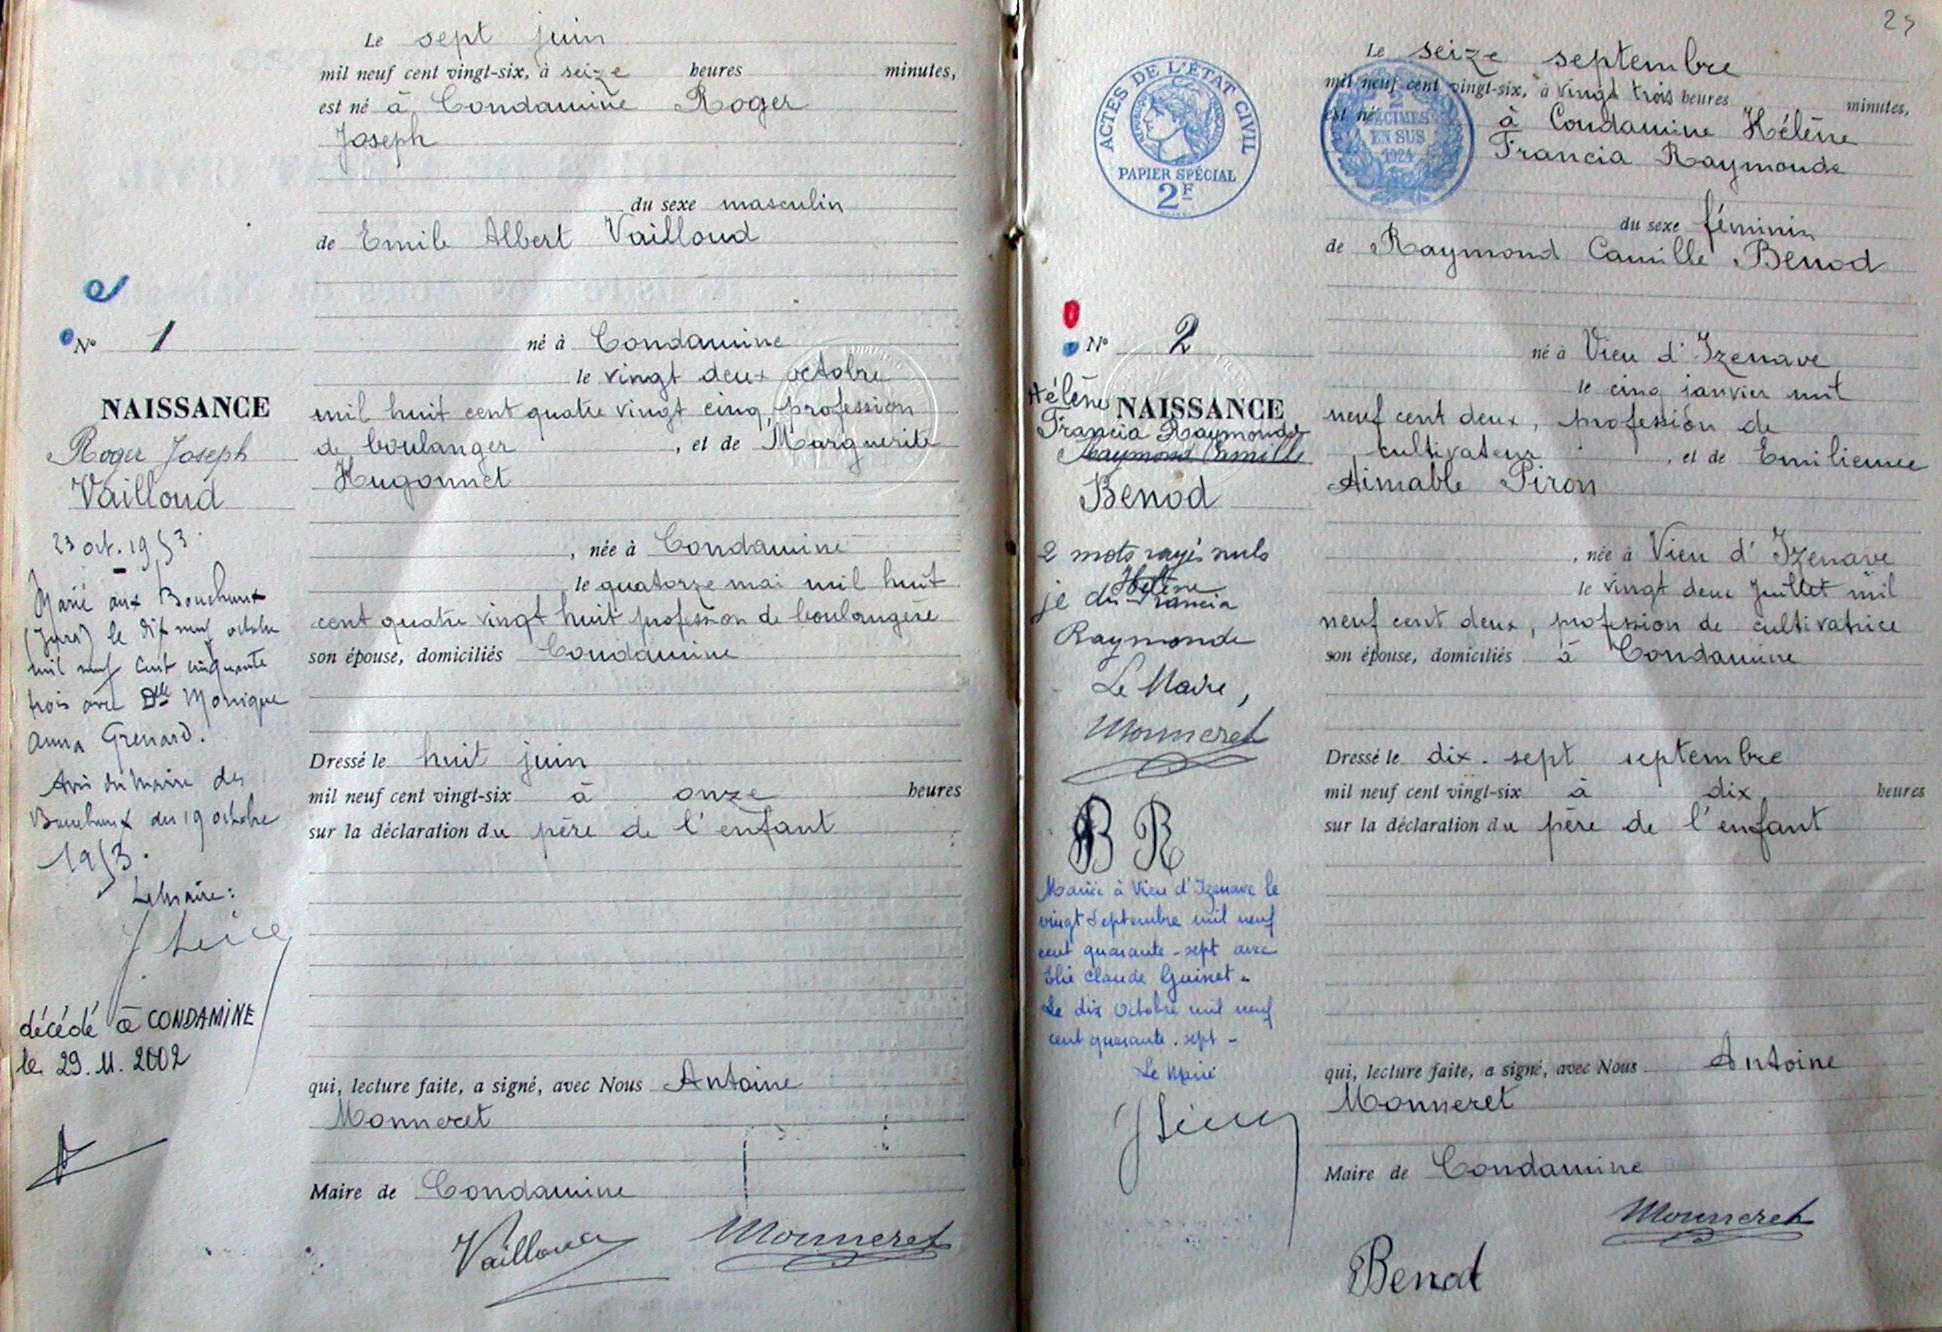 Le sept juin
mil neuf cent vingt-six, à seize heures minutes,
est né à Condamine Roger
Joseph
du sexe masculin
de Emile Albert Vailloud
né à Condamine
le vingt deux octobre
mil huit cent quatre vingt cinq, profession
de boulanger, et de Marguerite
Hugonnet
, née à Condamine
le quatorze mai mil huit
cent quatre vingt huit profession de boulangère
son épouse, domiciliés Condamine
Dressé le huit juin
mil neuf cent vingt-six à onze heures
sur la déclaration du père de l'enfant
qui, lecture faite, a signé, avec Nous Antoine
Monneret
Maire de Condamine
Vailloud Monneret
N° 1
NAISSANCE
Roger Joseph
Vailloud
23 oct. 1953.
Marié aux Bouchoux
(Jura) le dix neuf octobre
mil neuf cent cinquante
trois avec Dlle Monique
Anna Grenard.
Avis du Maire des
Bouchoux du 19 octobre
1953.
Le Maire:
décédé à CONDAMINE
le 29.11.2002
25
ACTES DE L'ÉTAT CIVIL
PAPIER SPÉCIAL
2F
2
DÉCIMES
EN SUS
1924
Le seize septembre
mil neuf cent vingt-six, à vingt trois heures minutes,
est né à Condamine Hélène
Francia Raymonde
du sexe féminin
de Raymond Camille Benod
né à Vieu d'Izenave
le cinq janvier mil
neuf cent deux, profession de
cultivateur, et de Emilienne
Aimable Piron
, née à Vieu d'Izenave
le vingt deux Juillet mil
neuf cent deux, profession de cultivatrice
son épouse, domiciliés à Condamine
Dressé le dix-sept septembre
mil neuf cent vingt-six à dix heures
sur la déclaration du père de l'enfant
qui, lecture faite, a signé, avec Nous Antoine
Monneret
Maire de Condamine
Monneret
Benod
N° 2
Hélène
NAISSANCE
Francia Raymonde
Raymond Camille
Benod
2 mots rayés nuls
Hélène
je dis Francia
Raymonde
Le Maire,
Monneret
B R
Mariée à Vieu d'Izenave le
vingt Septembre mil neuf
cent quarante-sept avec
Elie Claude Guinet.
Le dix Octobre mil neuf
cent quarante-sept -
Le Maire